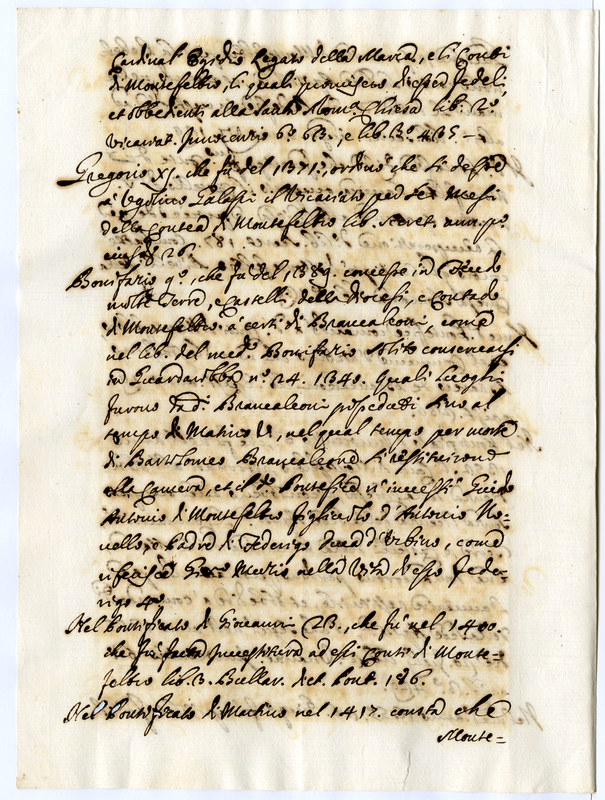 Cardinal Egydio Legato della Marca, e li Conti
di Montefeltro, li quali promisero di esser fedeli,
et obbedienti alla Santa Romª Chiesa lib. 2º
Vicariat. Innocentio 6º 63., e lib. 3º 435.
Gregorio XI. che fù del 1371., ordinò che si desse
à Ugolino Galassi il Vicariato per sei Mesi
della Contea di Montefeltro lib. secret. ann. pº
eiusd. 26.
Bonifatio 9º, che fù del 1389. concesse in Feudo
molte Terre, e Castelli, della diocesi, e Contado
di Montefeltro à certi di Brancaleoni, come
nel lib. del medº Bonifatio solito conservarsi
in Guardarobba nº 24. 1340. Quali luoghi
furono da dⁱ Brancaleoni posseduti sino al
tempo di Matino V, nel qual tempo per morte
di Bartolomeo Brancaleone si restituirono
alla Camera, et il dº Pontefice n'investì Guido
Antonio di Montefeltro figliuolo d'Antonio No=
vello, e Padre di Federigo Duca d'Urbino, come
riferisce Girº Mutio nella Vita di esso Fede=
rigo 4º
Nel Pontificato di Giovanni 23., che fù nel 1400.
che fù fatta investitura ad essi Conti di Monte=
feltro lib. 3. Bullar. dict. Pont. 186.
Nel Pontificato di Martino nel 1417. consta che
Monte=